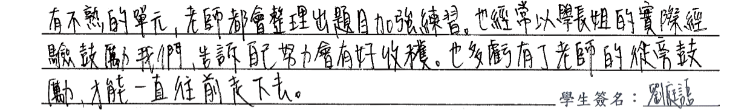 有不熟的單元,老師都會整理出題目加強練習。也經常以學長姐的實際經
驗鼓勵我們,告訴自己努力會有好收穫。也多虧有了老師的從旁鼓
勵,才能一直往前走下去。
學生簽名:劉庭